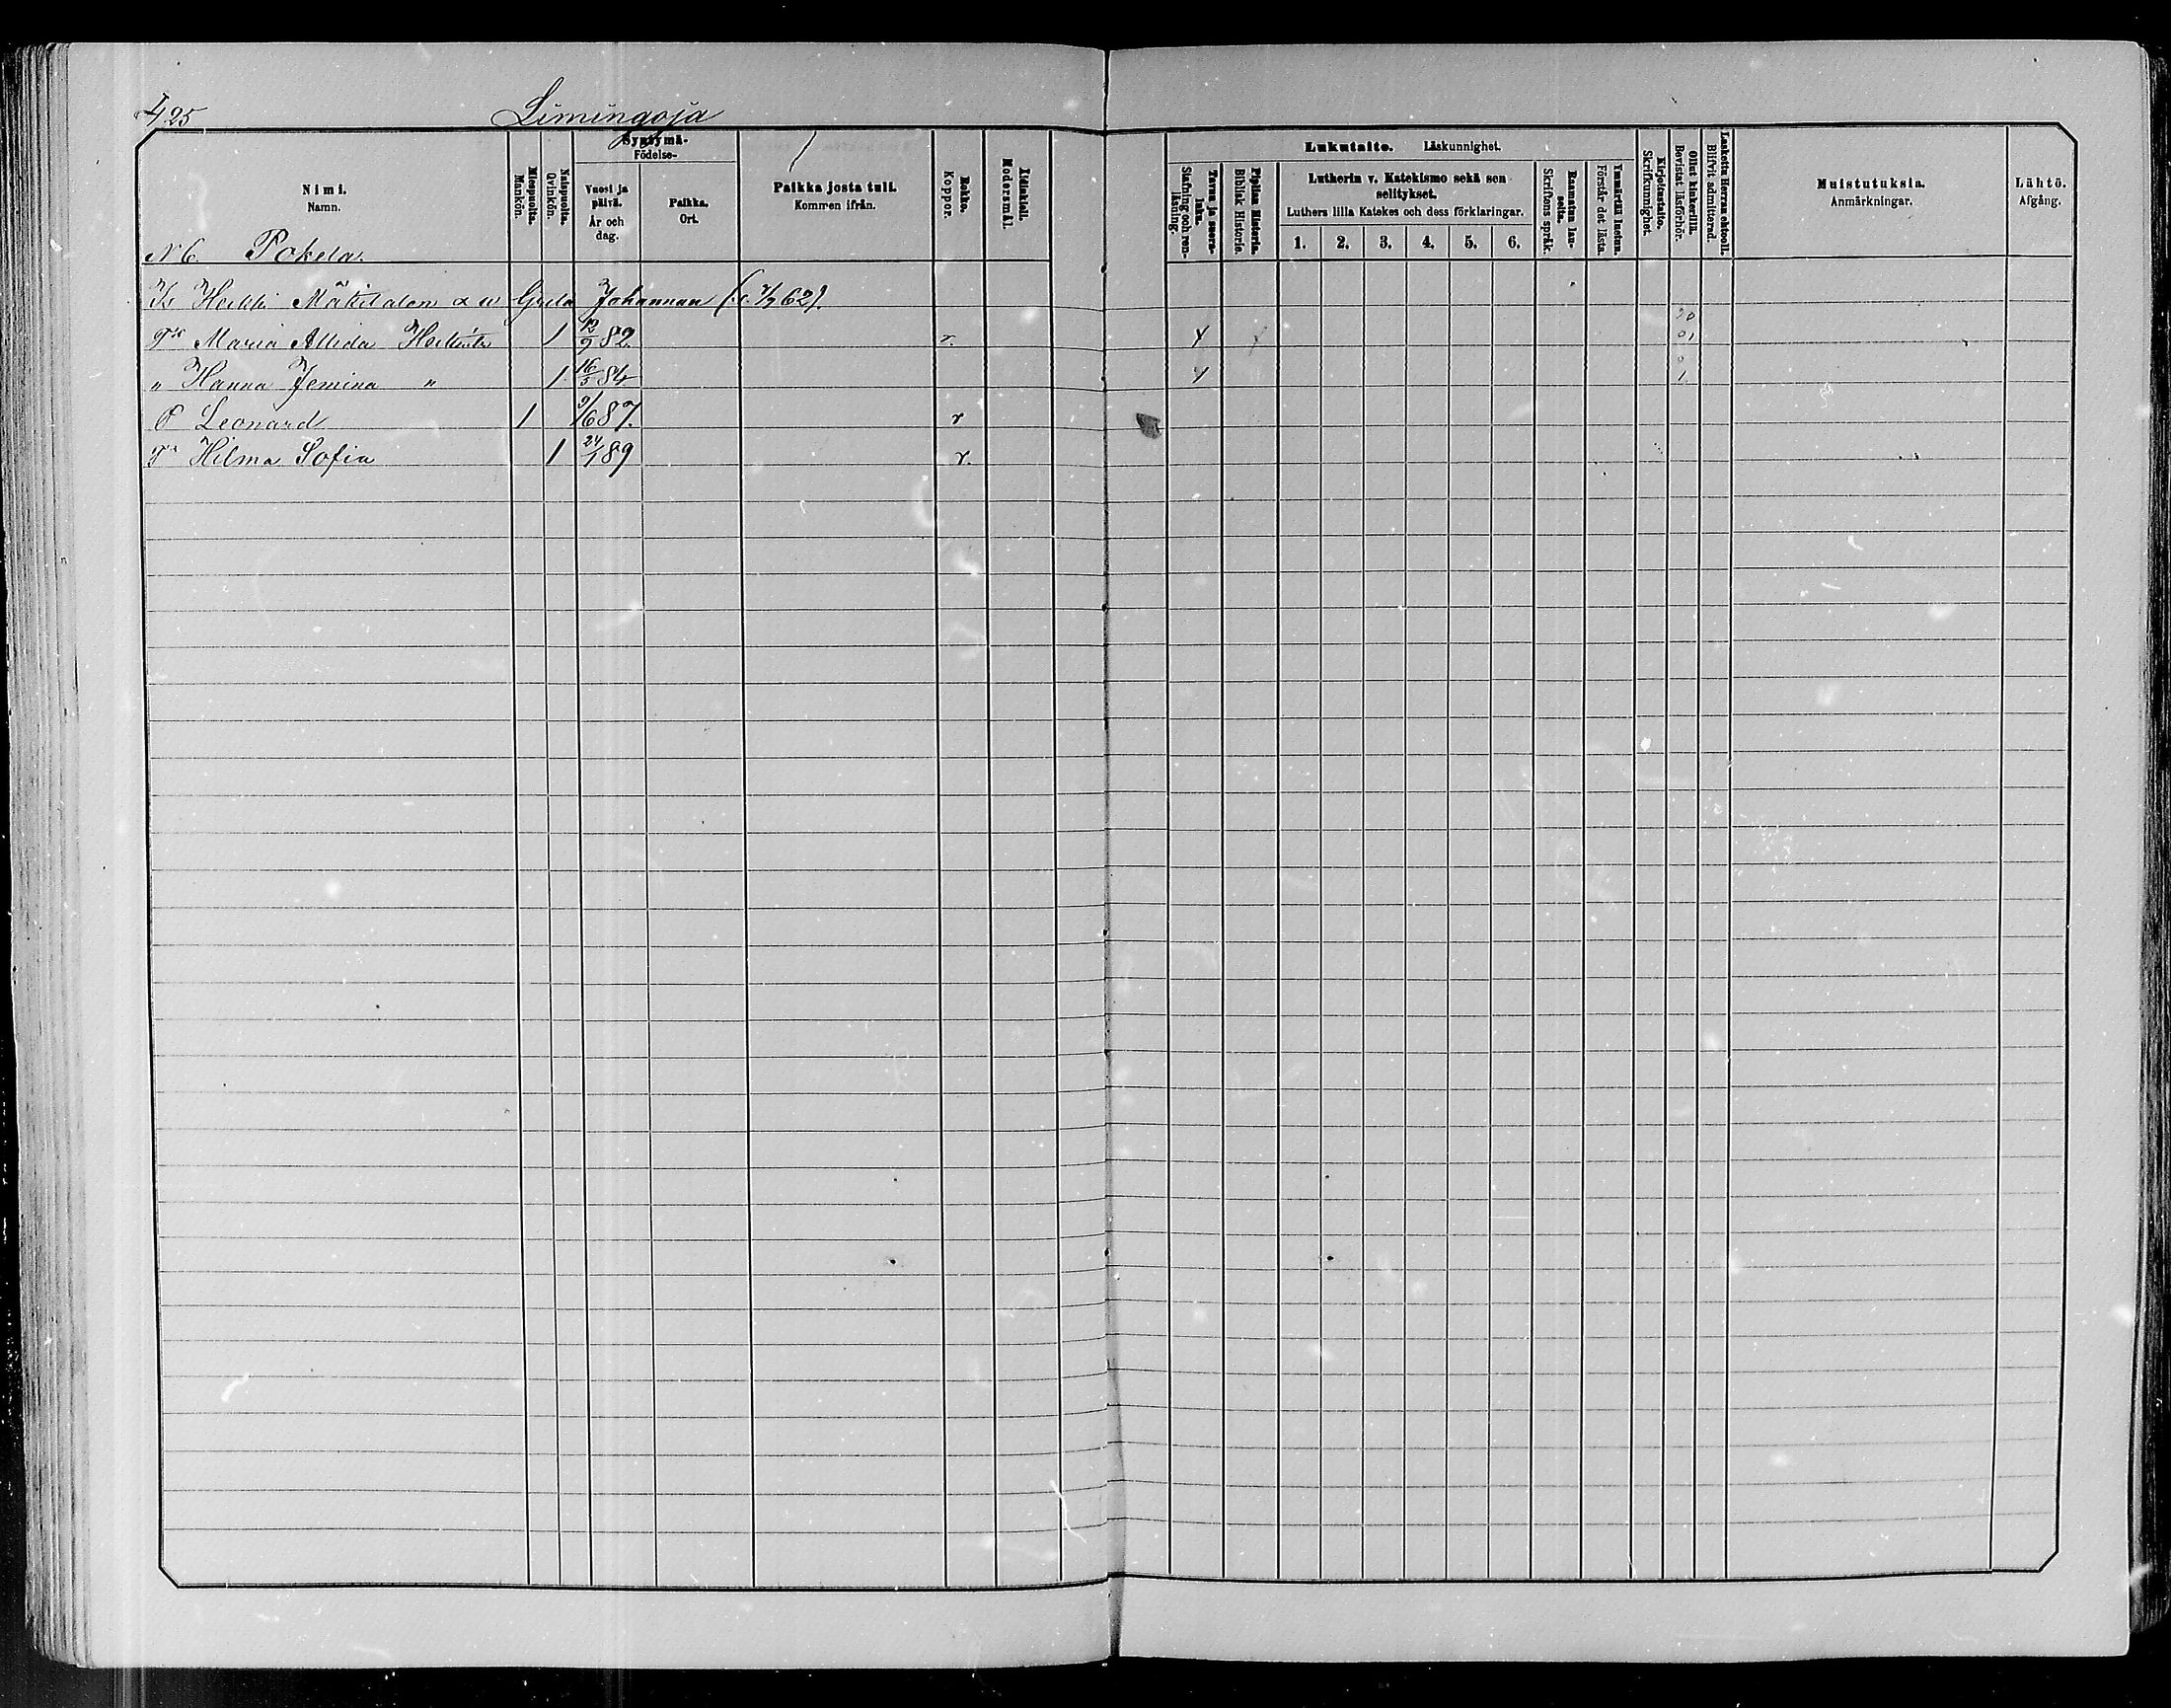 425 Limingoja
Nimi.
Namn.
Miespuolta.
Mankön.
Naispuolta.
Qvinkön.
Syntymä-
Födelse-
Vuosi ja päivä.
År och dag.
Paikka.
Ort.
Paikka josta tuli.
Kommen ifrån.
Rokko.
Koppor.
Äidinkieli.
Modersmål.
Lukutaito. Läskunnighet.
Tavuu ja suora-luku.
Stafning och ren-läsning.
Piplian Historia.
Biblisk Historie.
Lutherin v. Katekismo sekä sen
selitykset.
Luthers lilla Katekes och dess förklaringar.
1. 2. 3. 4. 5. 6.
Raamatun lau-seita.
Skriftens språk.
Ymmärtää luetun.
Förstår det lästa.
Kirjoitustaito.
Skrifkunnighet.
Ollut kinkerillä.
Bevistat läsförhör.
Laskettu Herran ehtooll.
Blifvit admitterad.
Muistutuksia.
Anmärkningar.
Lähtö.
Afgång.
N 6. Pokela.
Is Heikki Johannan 62).
Tr Maria 1 12/9 82. r.
" Hanna Jemina " 1 16/5 84
P Leonard 1 9/6 87. r
Tr Hilma Sofia 1 24/1 89 r.